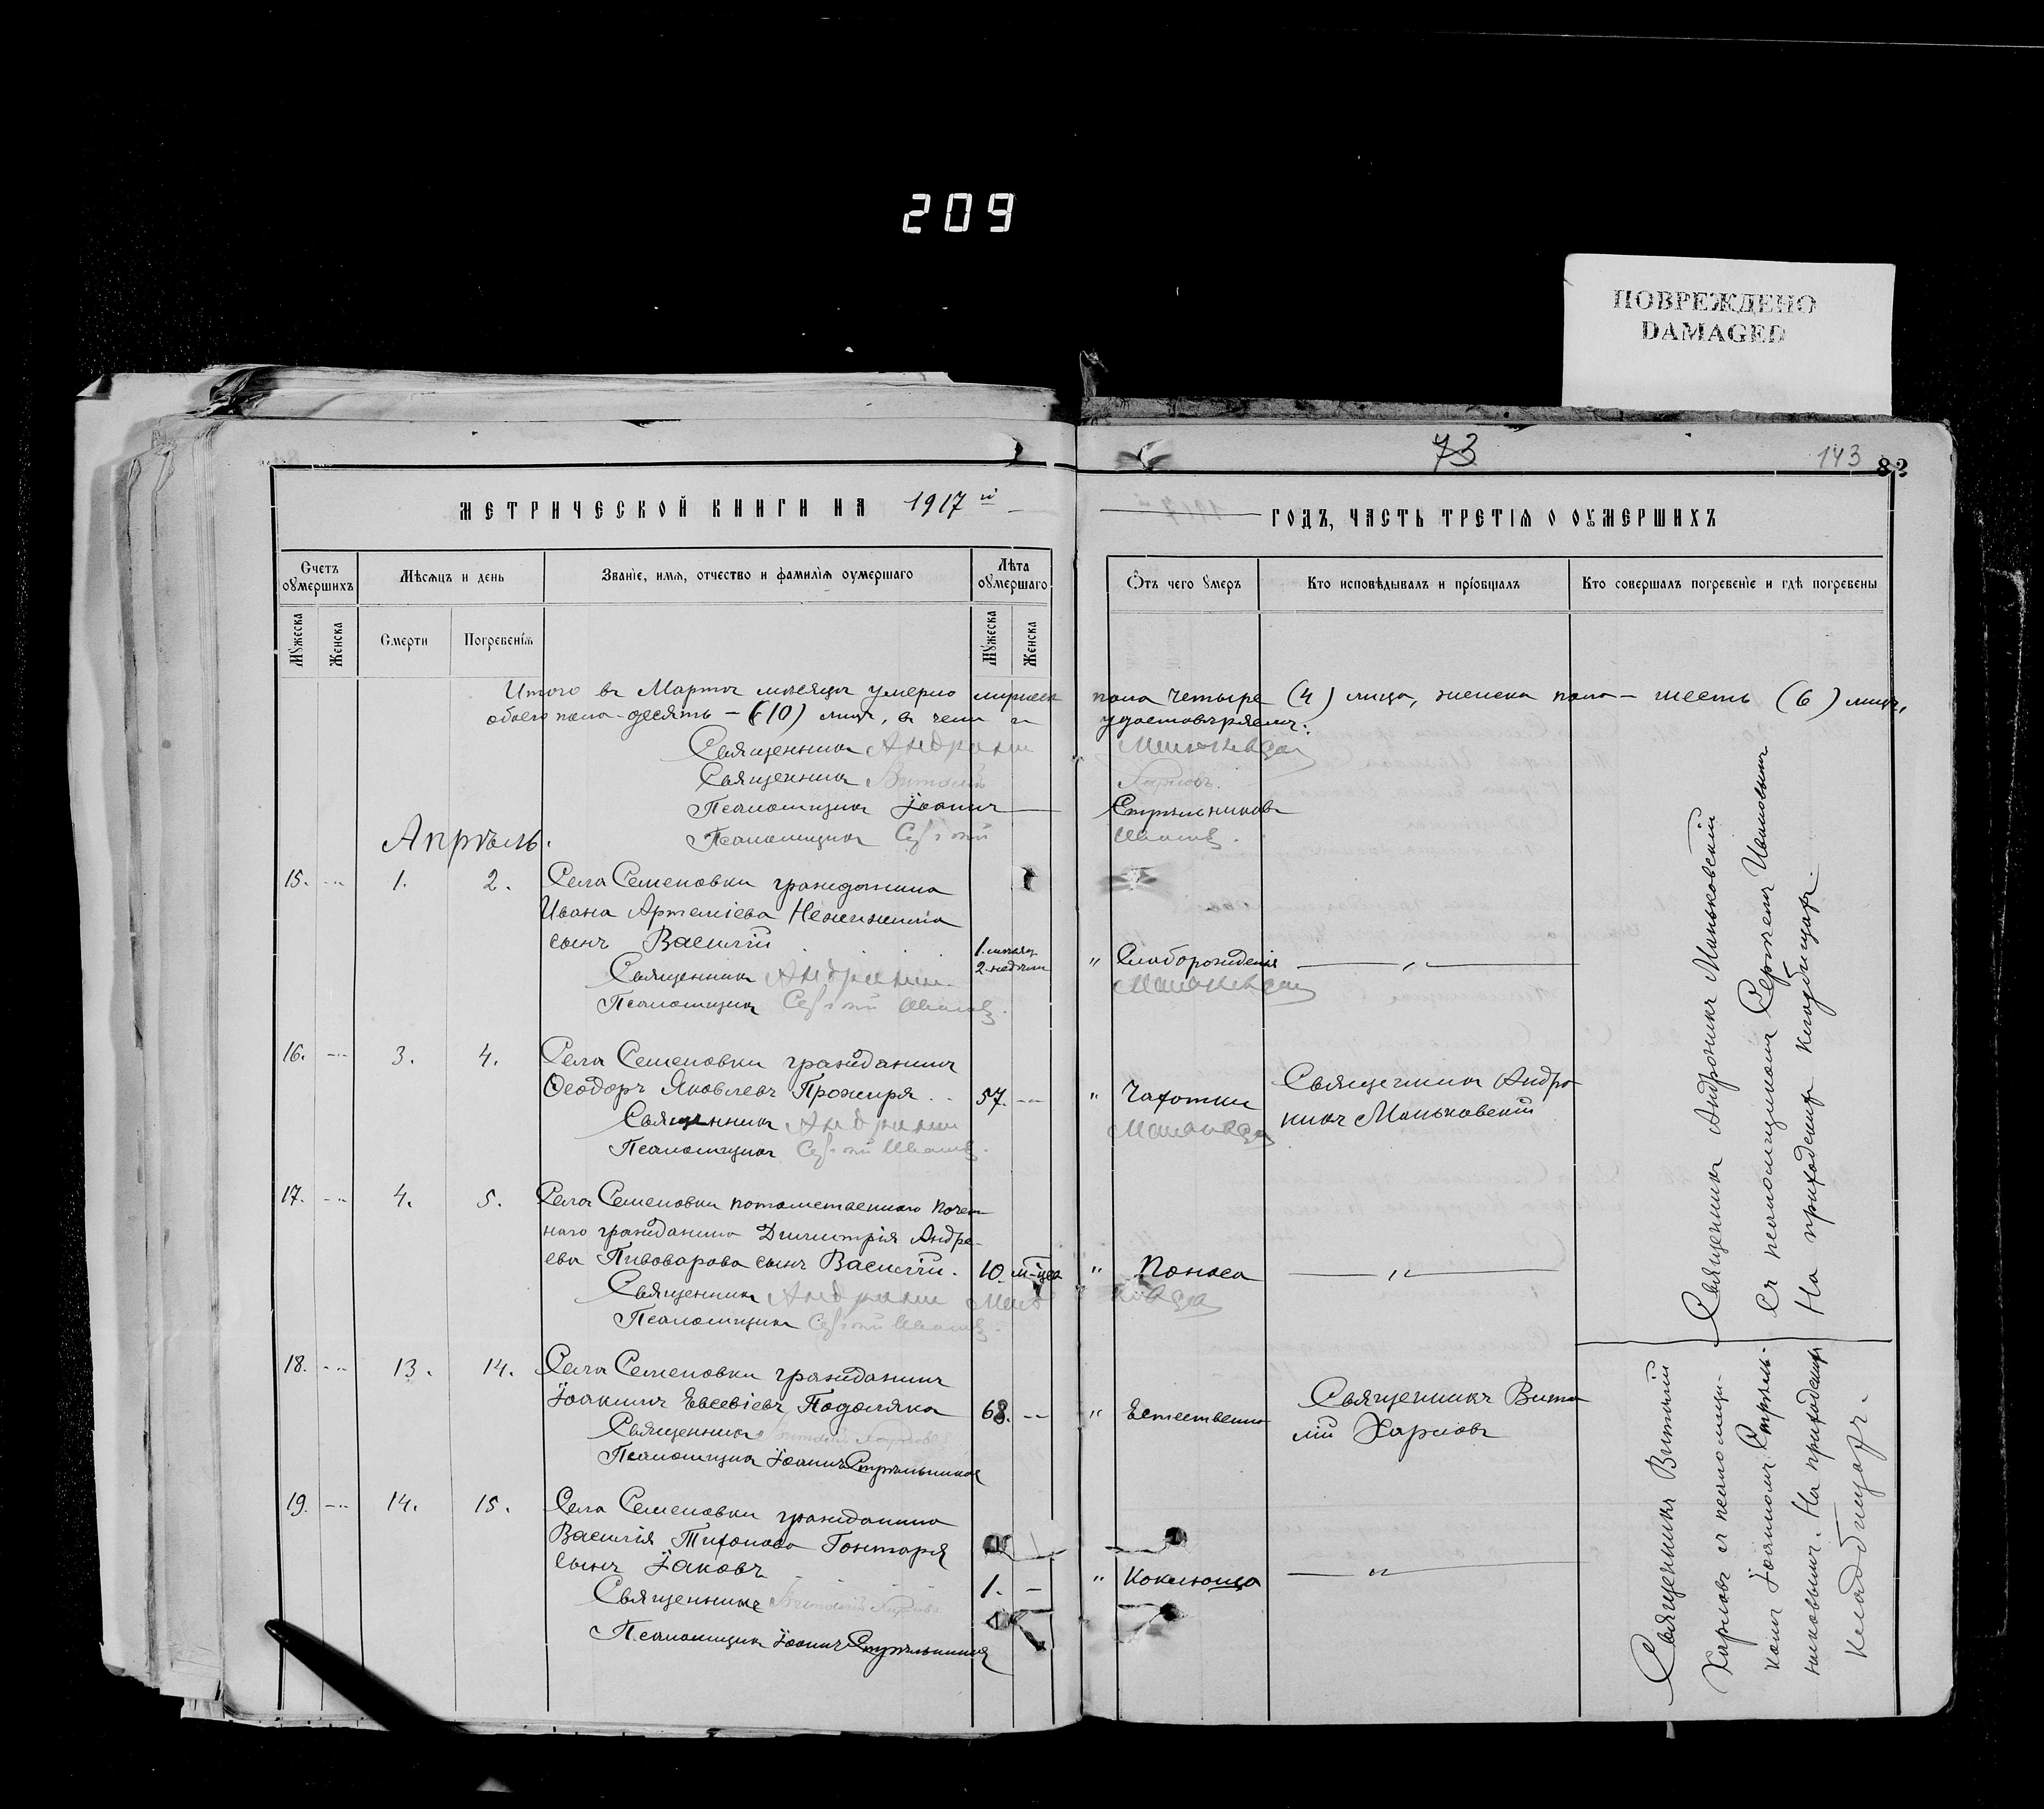 209
ПОВРЕЖДЕНО
DAMAGED
73
143
82
МЕТРИЧЕСКОЙ КНИГИ НА 1917й
ГОДЪ, ЧАСТЬ ТРЕТІЯ О ОУМЕРШИХЪ
Счетъ оумершихъ
Мѣсяцъ и день
Званіе, имя, отчество и фамилія оумершаго
Лѣта оумершаго
Отъ чего умеръ
Кто исповѣдывалъ и пріобщалъ
Кто совершалъ погребеніе и гдѣ погребены
Мужеска
Женска
Смерти
Погребенія
Мужеска
Женска
Итого въ Мартѣ мѣсяцѣ умерло мужеск пола четыре (4) лица, женска пола – шесть (6) лицъ,
обоего пола – десять – (10) лицъ, в чемъ и удостовѣряемъ:
Священникъ Андроникъ Маньковскій
Священникъ Виталій Харловъ.
Псаломщикъ Іоаннъ Стрѣльниковъ
Апрѣль.
Псаломщикъ Сергѣй Ивановъ.
15. 1. 2. Села Семеновки гражданина
Ивана Артеміева Нежижима
сынъ Василій
1. мѣсяц 2. недѣли " Слаборожденія — " —
Священникъ Андроникъ Маньковскій
Псаломщикъ Сергѣй Ивановъ.
16. 3. 4. Села Семеновки гражданинъ
Ѳеодоръ Яковлевъ Прожиря 57. " Чахотки
Священникъ Андроникъ Маньковскій
Священникъ Андроникъ Маньковскій
Псаломщикъ Сергѣй Ивановъ.
17. 4. 5. Села Семеновки потомственнаго почет
наго гражданина Димитрія Андре-
ева Пивоварова сынъ Василій. 10. м-цев " Поноса — " —
Священникъ Андроникъ Маньковскій
Псаломщикъ Сергѣй Ивановъ.
18. 13. 14. Села Семеновки гражданинъ
Іоакимъ Евсевіевъ Подоляка 68. " Естественно
Священникъ Виталій Харловъ
Священникъ Виталій Харловъ
Псаломщикъ Іоаннъ Стрѣльниковъ
19. 14. 15. Села Семеновки гражданина
Василія Тихонова Гонтаря
сынъ Іаковъ 1. " Коклюша — " —
Священникъ Виталій Харловъ
Псаломщикъ Іоаннъ Стрѣльниковъ
Священникъ Андроникъ Маньковскій
Съ псаломщикомъ Сергѣемъ Ивановымъ
На приходскомъ кладбищѣ.
Священникъ Виталій
Харловъ съ псаломщи-
комъ Іоанномъ Стрѣль-
никовымъ. На приходскомъ
кладбищѣ.